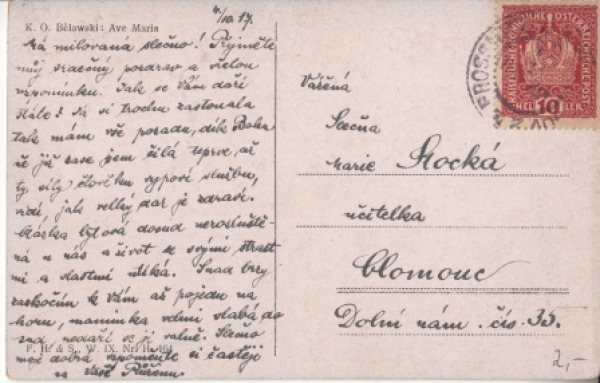 4/10. 17.
K. O. Bělawski: Ave Maria
Má milovaná slečno! Přijměte
můj srdečný pozdrav a vřelou
vzpomínku. Jak se Vám daří
stále? Já si trochu zastonala
tak mám vše pozadu, dík Bohu
že již zase jsem čilá teprve, až
ty síly člověku vypoví službu,
vidí, jak velký dar je zdraví.
otázka bytová dosud nerozluště-
ná u nás a život se svými strast
mi a slastmi utíká. Snad brzy
zaskočím k Vám až pojedu na
horu, maminka velmi slabá do
se jí valně. Slečno
má dobrá vzpomeňte si častěji
na Vaši Růženu.
F. H. & S., W. IX. Nr.
Vážená
Slečna
Marie Stocká
učitelka
Olomouc
Dolní nám. čís. 35.
KAISERLICHE KÖNIGLICHE ÖSTERREICHISCHE POST
10
HELLER
PROSSN
2,-